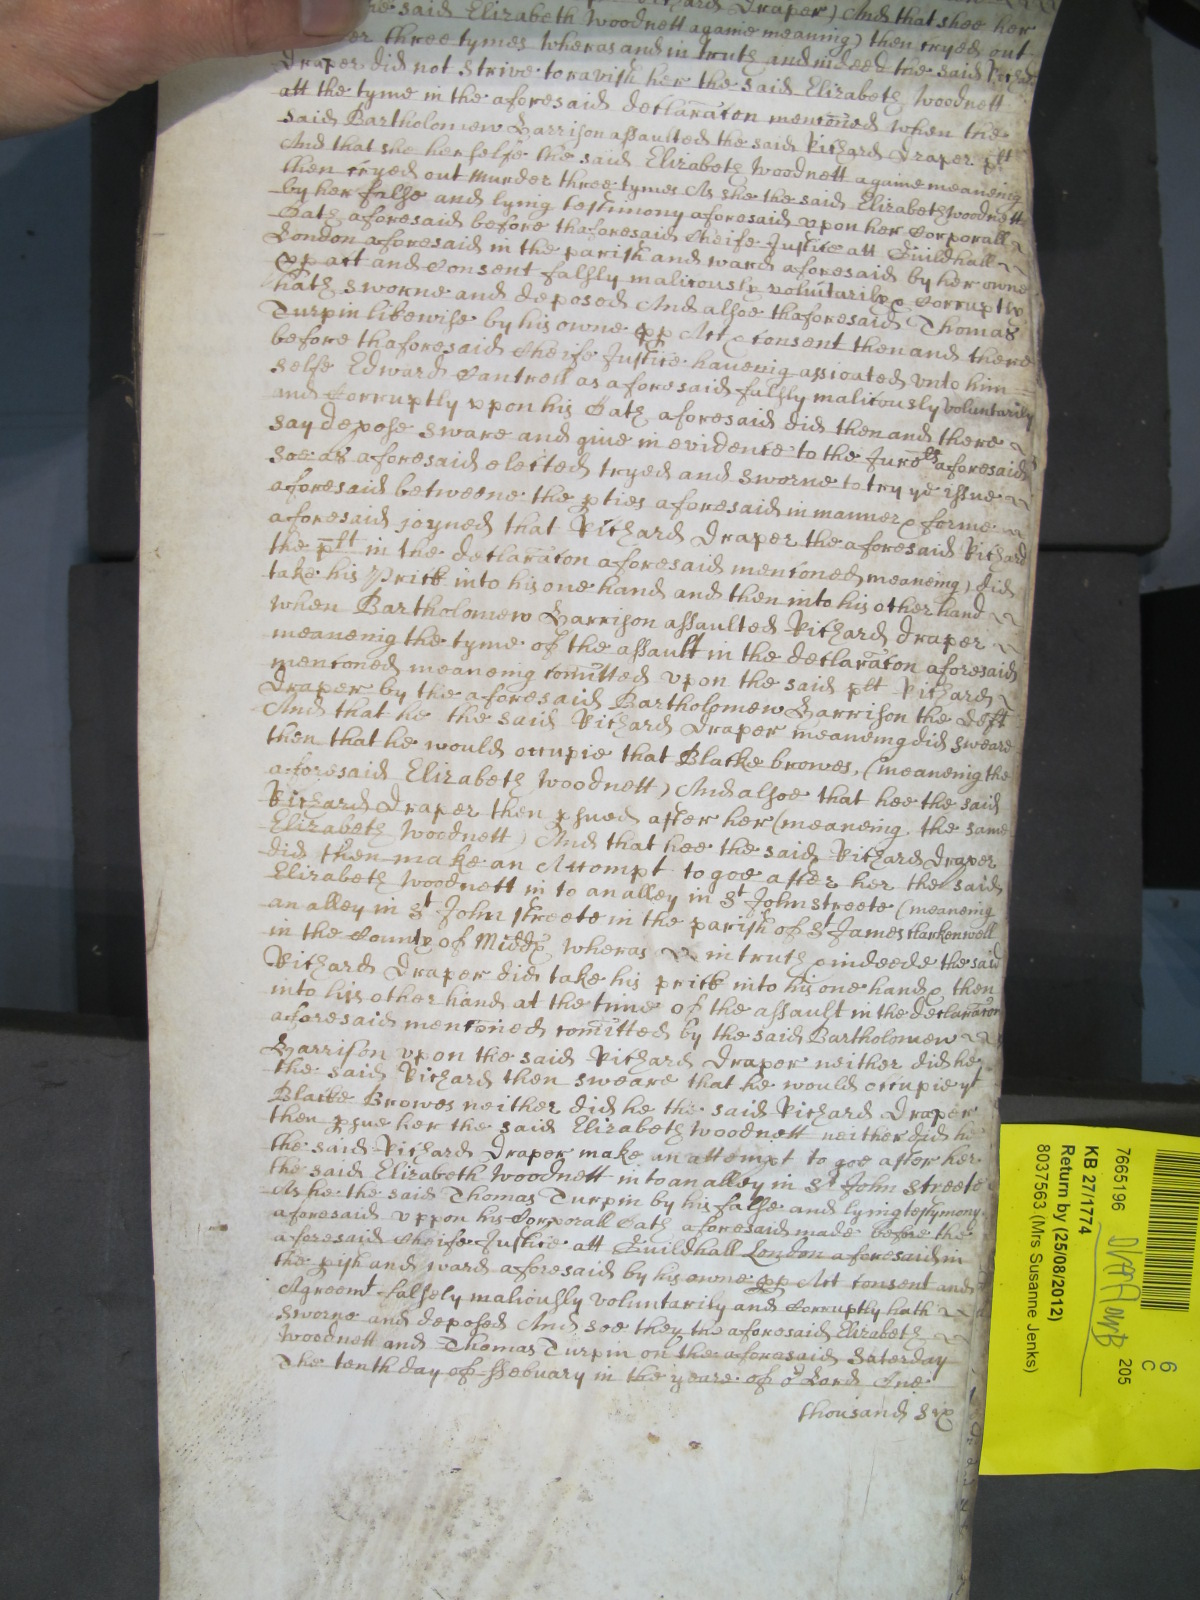 he said Elizabeth Woodnett againe meaning) then cryed out
three tymes wheras and in truth and indeed the said Richard
Draper did not strive to ravish her the said Elizabeth Woodnett
att the tyme in the aforesaid declaraton mentioned when the
said Bartholomew Harrison assaulted the said Richard Draper plt
And that she her selfe the said Elizabeth Woodnett againe meaneing
then cryed out Murder three tymes As she the said Elizabeth Woodnett
by her false and lying testimony aforesaid upon her Corporall
Oath aforesaid before thaforesaid Cheife Justice att Guildhall
London aforesaid in the parish and ward aforesaid by her owne
pp act and Consent falsly malitously voluntarily & Corruptly
hath sworne and deposed And alsoe thaforesaid Thomas
Turpin likewise by his owne pp Act & consent then and there
before thaforesaid Cheife Justice haueing assioated vnto him
selfe Edward Cantrell as aforesaid falsly malitously voluntarily
and Corruptly vpon his Oath aforesaid did then and there
say depose sware and giue in evidence to the Jurors aforesaid
soe as aforesaid elected tryed and sworne to try ye issue
aforesaid betweene the pties aforesaid in manner & forme
aforesaid joyned that Richard Draper the aforesaid Richard
the plt in the declaraton aforesaid mentoned meaneing) did
take his Prick into his one hand and then into his other hand
when Bartholomew Harrison assaulted Richard Draper
meaneing the tyme of the assault in the declaraton aforesaid
mentoned meaneing comitted vpon the said plt Richard
Draper by the aforesaid Bartholomew Harrison the deft
And that he the said Richard Draper meaneing did sweare
then that he would occupie that Blacke browes, (meaneing the
aforesaid Elizabeth Woodnett) And alsoe that hee the said
Richard Draper then psued after her (meaneing the same
Elizabeth Woodnett) And that hee the said Richard Draper
did then make an Attempt to goe after her the said
Elizabeth Woodnett in to an alley in St John streete (meaneing
an alley in St John streete in the parish of St James Clarkenwell
in the County of Middx wheras in truth & indeede the said
Richard Draper did take his prick into his one hand & then
into his other hand at the time of the assault in the declaraton
aforesaid mentoned comitted by the said Bartholomew
Harrison vpon the said Richard Draper neither did he
the said Richard then sweare that he would occupie yt
Blacke Browes neither did he the said Richard Draper
then psue her the said Elizabeth Woodnett neither did he
the said Richard Draper make an attempt to goe after her
the said Elizabeth Woodnett into an alley in St John streete
As he the said Thomas Turpin by his false and lying testymony
aforesaid vppon his Corporall Oath aforesaid made before the
aforesaid Cheife Justice att Guildhall London aforesaid in
the psh and ward aforesaid by his owne pp Act consent and
Agreemt falsely maliously voluntarily and Corruptly hath
sworne and deposed And soe they the aforesaid Elizabeth
Woodnett and Thomas Turpin on the aforesaid Saterday
The tenth day of ffebuary in the yeare of or Lord One
thousand six
7665196
KB 27/1774
Return by (25/08/2012)
8037563 (Mrs Susanne Jenks)
6
C
205